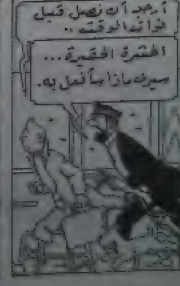 أرجو أن نصل قبل
فوات الوقت..
الحشرة الحقيرة...
سيرى ماذا سأفعل به.